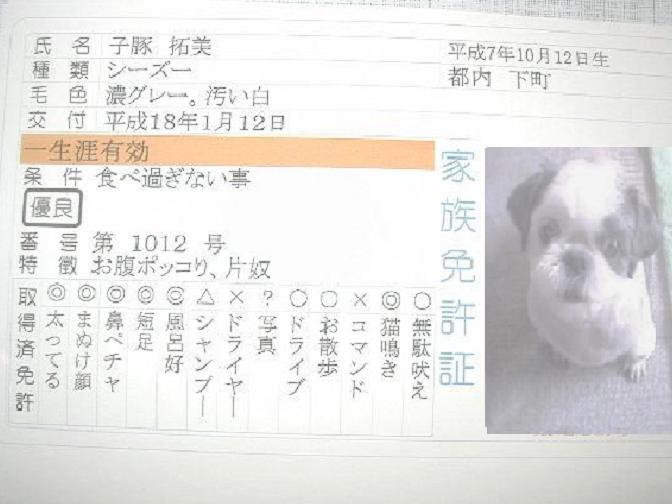 氏名 子豚 拓美
平成7年10月12日生
種類 シーズー
都内 下町
毛色 濃グレー。汚い白
交付 平成18年1月12日
一生涯有効
条件 食べ過ぎない事
優良
番号 第 1012 号
特徴 お腹ポッコリ、片奴
家族免許証
取得済免許
◎太ってる
◎まぬけ顔
◎鼻ペチャ
◎短足
◎風呂好
△シャンプー
×ドライヤー
?写真
○ドライブ
○お散歩
×コマンド
◎猫鳴き
○無駄吠え